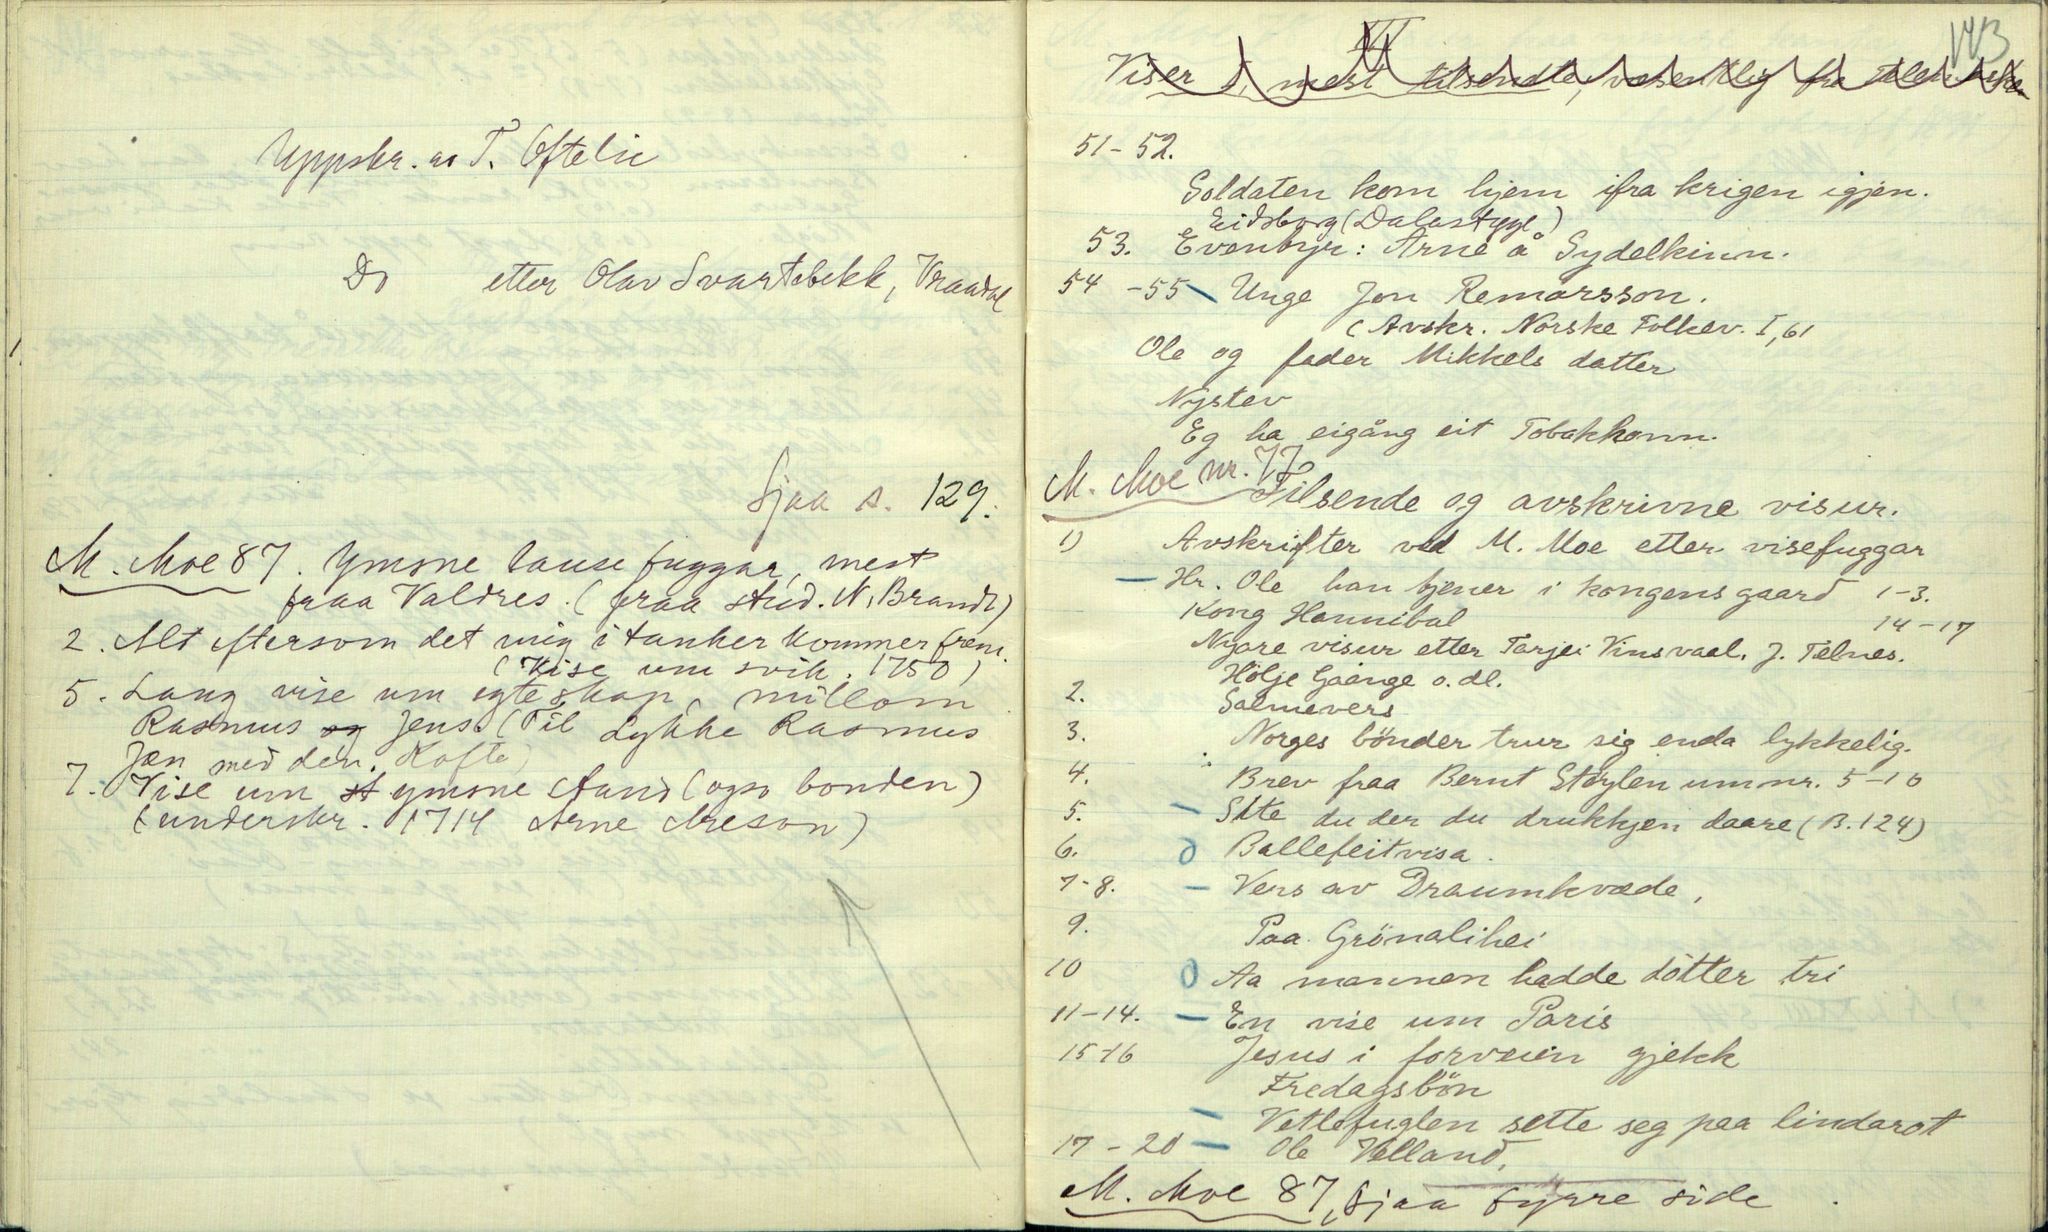 Uppskr. av T. Oftelie
Do etter Olav Svartebekk, Vraadal
Sjaa s. 129.
M. Moe 87. Ymsne lause fuggar, mest
fraa Valdres. (fraa stud. N. Brandt)
2. Alt eftersom det mig i tanker kommer frem.
(Vise um svik. 1750)
5. Lang vise um egteskap, millom
Rasmus og Jens. (Til Lykke Rasmus
Jen med den. Kofte)
7. Vise um st ymsne stand (ogso bonden)
(underskr. 1714 Arne Areson)
143
VII
Viser mest tilsendte, vesentlig fra Telemarken
51-52.
Soldaten kom hjem ifra krigen igjen.
Eidsborg (Dalastygl)
53. Eventyr: Arne å Sydelkinn.
54-55 Unge Jon Remarsson.
(Avskr. Norske Folkev. I, 61
Ole og fader Mikkels datter
Nystev
Eg ha eigång eit Tobakkonn.
M. Moe nr. 77 Tilsende og avskrivne visur.
1) Avskrifter ved M. Moe etter visefuggar
— Hr. Ole han tjener i kongens gaard 1-3.
Kong Hannibal 14-17
Nyare visur etter Tarjei Vinsvaal, J. Telnes.
Hölje Gaange o. dl.
2. Salmevers
3. Norges bönder trur sig enda lykkelig.
4. Brev fraa Bernt Støylen um nr. 5-10
5. — Sitte du der du drukkjen daare (B. 124)
6. o Ballefeitvisa.
7-8. — Vers av Draumkvæde,
9. Paa Grönalihei
10 o Aa mannen hadde dötter tri
11-14. — En vise um Paris
15-16 Jesus i forveien gjekk
Fredagsbön
— Vetlefuglen sette seg paa lindarot
17-20 — Ole Velland,
M. Moe 87, sjaa fyrre side.